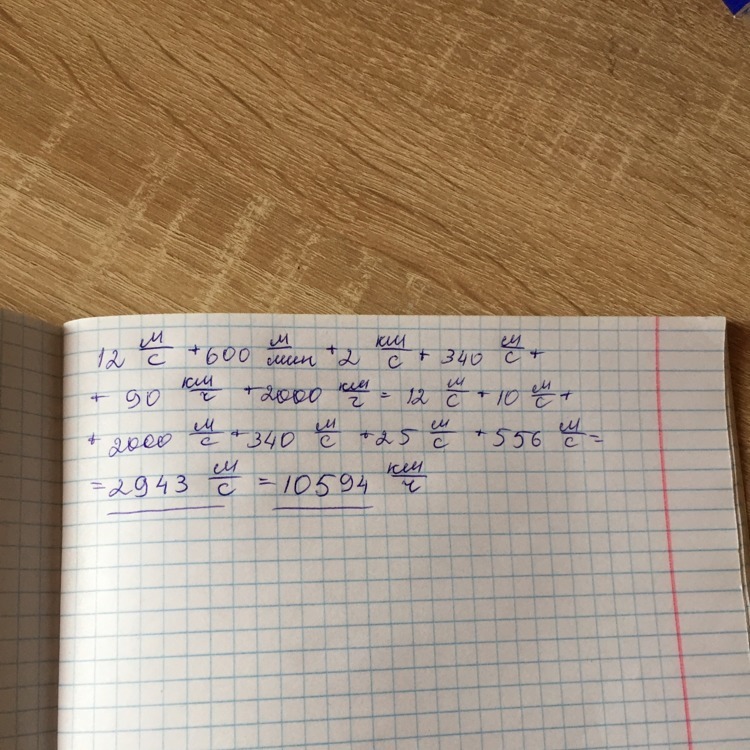 12 м/с + 600 м/мин + 2 км/с + 340 м/с +
+ 90 км/ч + 2000 км/ч = 12 м/с + 10 м/с +
+ 2000 м/с + 340 м/с + 25 м/с + 556 м/с =
= 2943 м/с = 10594 км/ч